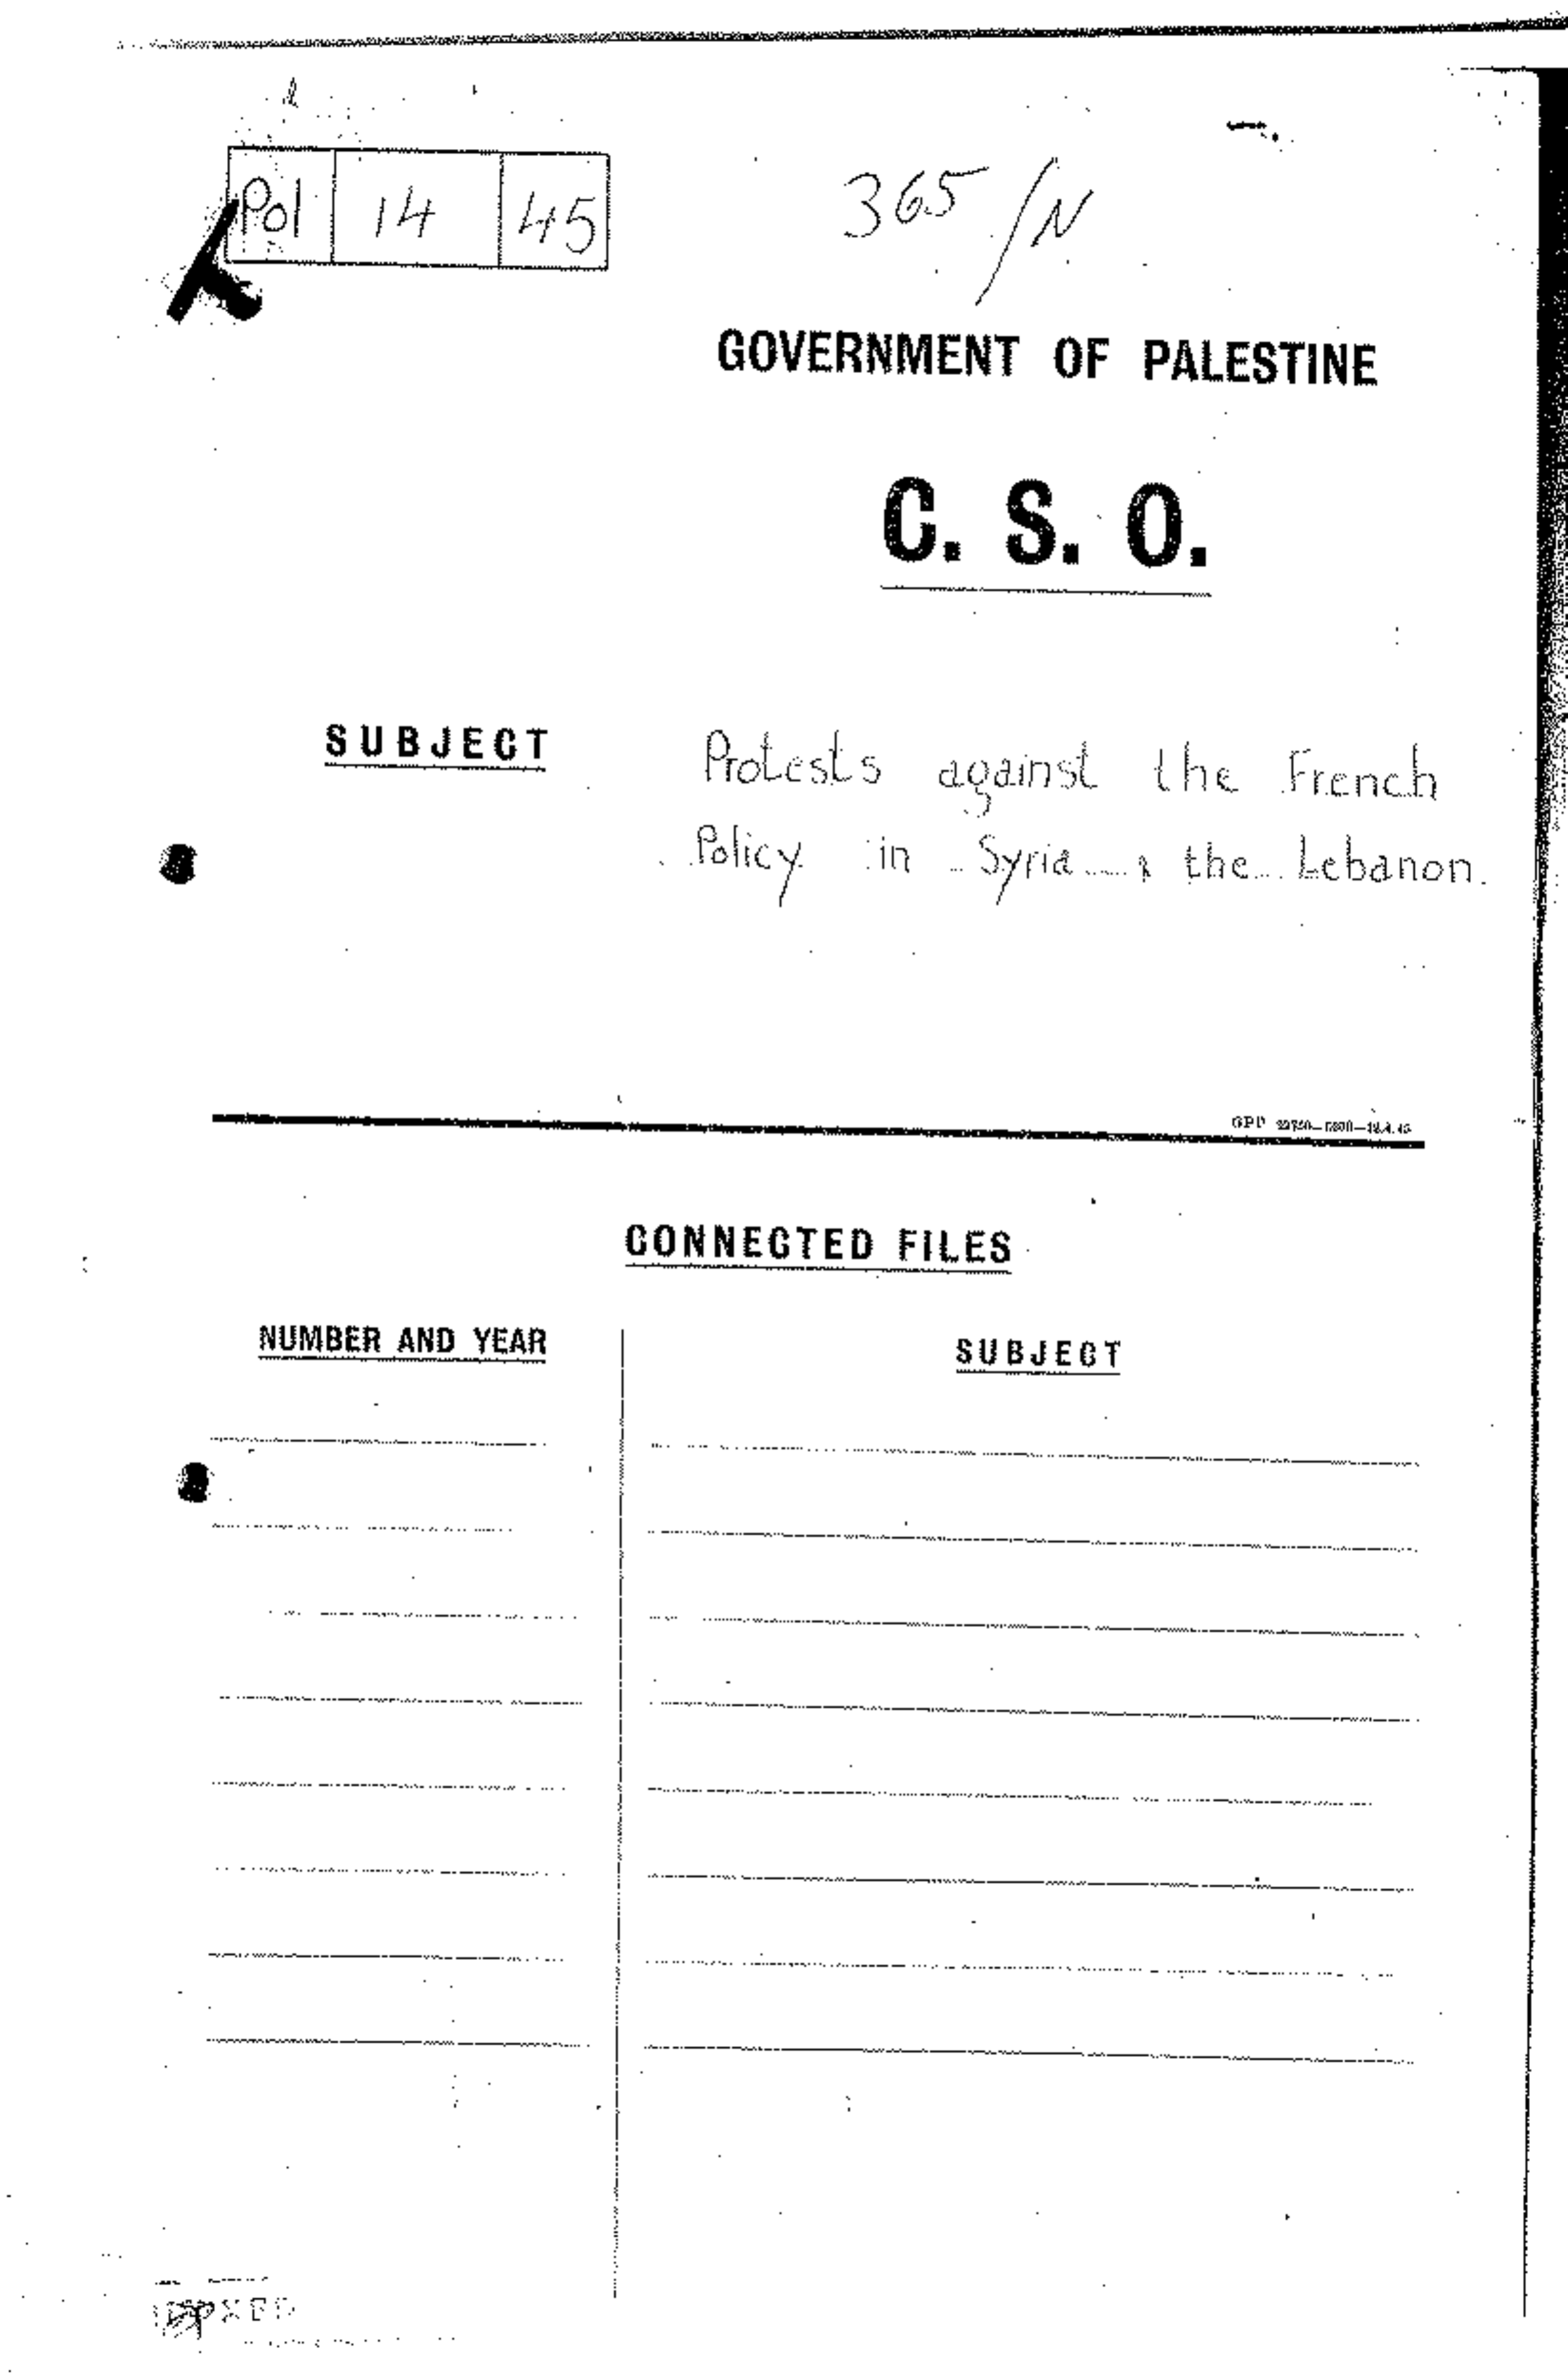 Pol 14 45
365/N
GOVERNMENT OF PALESTINE
C. S. O.
SUBJECT
Protests against the French
Policy in Syria & the Lebanon.
GPP
CONNECTED FILES
NUMBER AND YEAR
SUBJECT